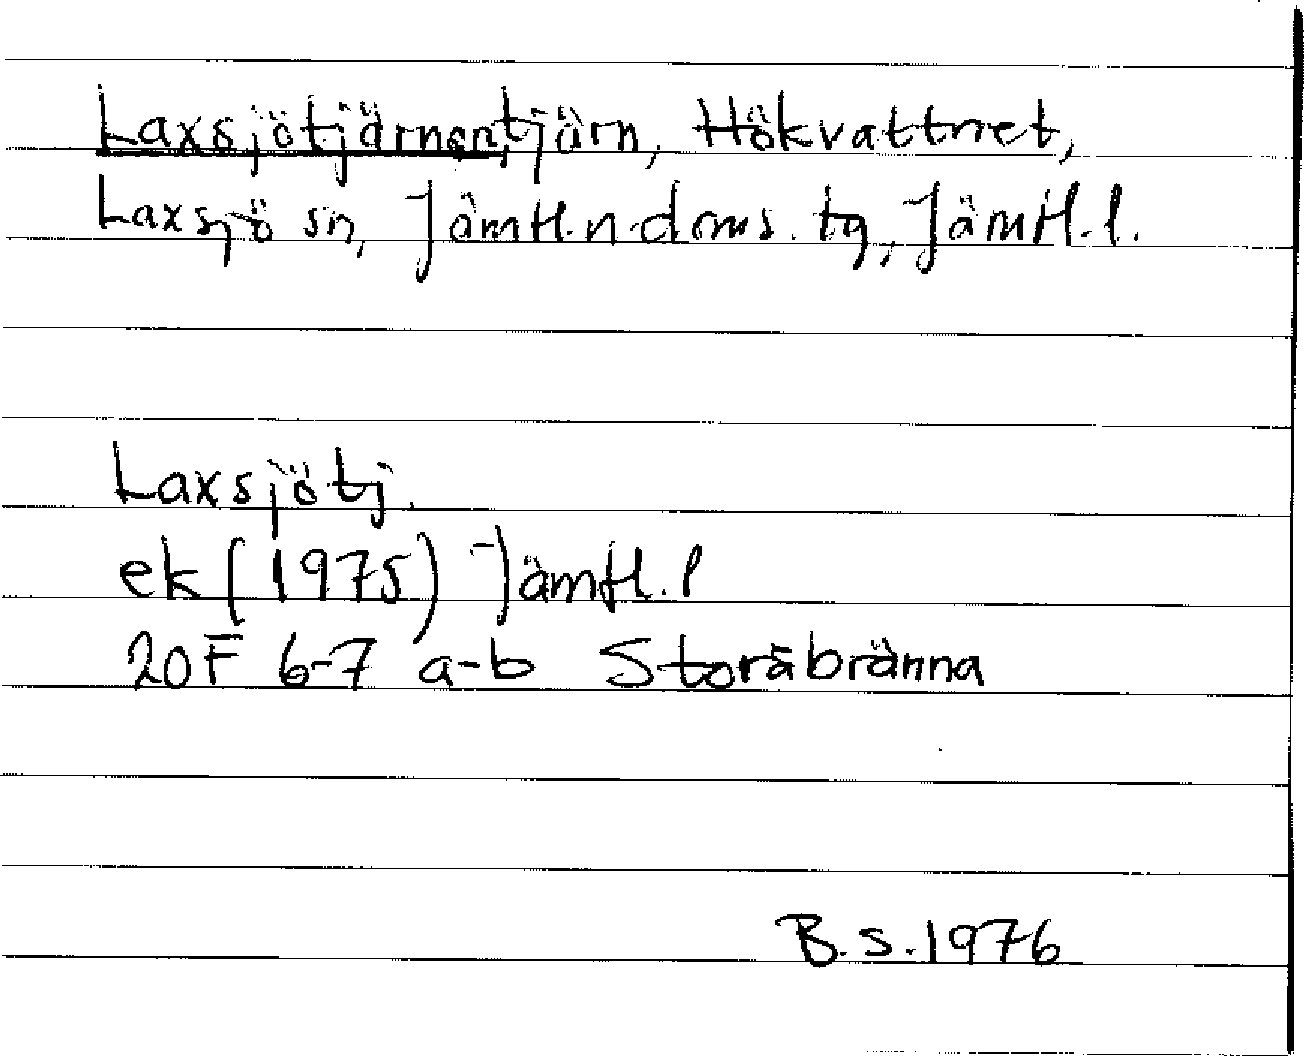 Laxsjötjärnen, tjärn, Hökvattnet,
Laxsjö sn, Jämtl. n. doms. tg, Jämtl. l.
Laxsjötj.
ek (1975) Jämtl. l
20F 6-7 a-b Storåbränna
B.S. 1976